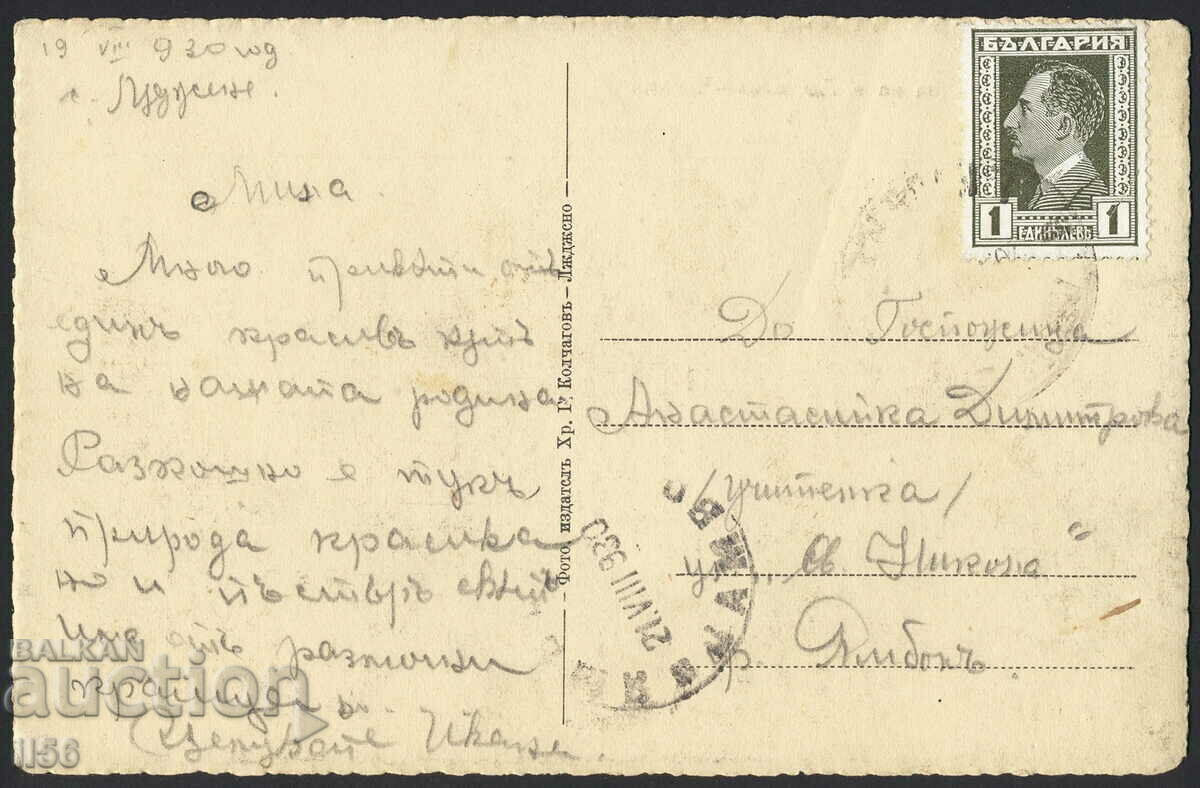 19 VIII 930 год
с. Лъджене.
Мила
Много привети отъ
единъ красивъ кутъ
на нашата родина
Разкошно е тукъ
природа красива
но и пъстъръ свѣтъ
Има отъ различни
краища
Целувайте
- Фото, издатель Хр. Г. Колчаговъ - Лжджено -
БЪЛГАРИЯ
1 ЕДИНЪ ЛЕВЪ 1
До Госпожица
Анастасийка Димитрова
/учителка/
ул. „Св. Никола“
гр. Ямболъ
ЯМБОЛ
21.VIII 930
BALKAN
auction
1156